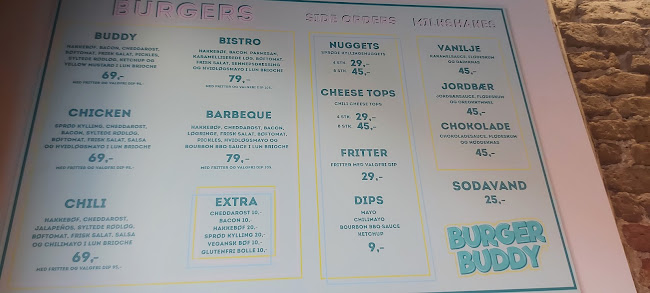 BURGERS
SIDE ORDERS
MILKSHAKES
BUDDY
HAKKEBØF, BACON, CHEDDAROST,
BØFTOMAT, FRISK SALAT, PICKLES,
SYLTEDE RØDLØG, KETCHUP OG
YELLOW MUSTARD I LUN BRIOCHE
69,-
MED FRITTER OG VALGFRI DIP 95,-
BISTRO
HAKKEBØF, BACON, PARMESAN,
KARAMELLISEREDE LØG, BØFTOMAT,
FRISK SALAT, SENNEPSDRESSING
OG HVIDLØGSMAYO I LUN BRIOCHE
79,-
MED FRITTER OG VALGFRI DIP 105,-
CHICKEN
SPRØD KYLLING, CHEDDAROST,
BACON, SYLTEDE RØDLØG,
BØFTOMAT, FRISK SALAT, SALSA
OG HVIDLØGSMAYO I LUN BRIOCHE
69,-
MED FRITTER OG VALGFRI DIP 95,-
BARBEQUE
HAKKEBØF, CHEDDAROST, BACON,
LØGRINGE, FRISK SALAT, BØFTOMAT,
PICKLES, HVIDLØGSMAYO OG
BOURBON BBQ SAUCE I LUN BRIOCHE
79,-
MED FRITTER OG VALGFRI DIP 105,-
CHILI
HAKKEBØF, CHEDDAROST,
JALAPEÑOS, SYLTEDE RØDLØG,
BØFTOMAT, FRISK SALAT, SALSA
OG CHILIMAYO I LUN BRIOCHE
69,-
MED FRITTER OG VALGFRI DIP 95,-
EXTRA
CHEDDAROST 10,-
BACON 10,-
HAKKEBØF 20,-
SPRØD KYLLING 20,-
VEGANSK BØF 10,-
GLUTENFRI BOLLE 10,-
NUGGETS
SPRØDE KYLLINGENUGGETS
4 STK. 29,-
8 STK. 45,-
CHEESE TOPS
CHILI CHEESE TOPS
4 STK. 29,-
8 STK. 45,-
FRITTER
FRITTER MED VALGFRI DIP
29,-
DIPS
MAYO
CHILIMAYO
BOURBON BBQ SAUCE
KETCHUP
9,-
VANILJE
KARAMELSAUCE, FLØDESKUM
45,-
JORDBÆR
JORDBÆRSAUCE, FLØDESKUM
45,-
CHOKOLADE
CHOKOLADESAUCE, FLØDESKUM
45,-
SODAVAND
25,-
BURGER
BUDDY